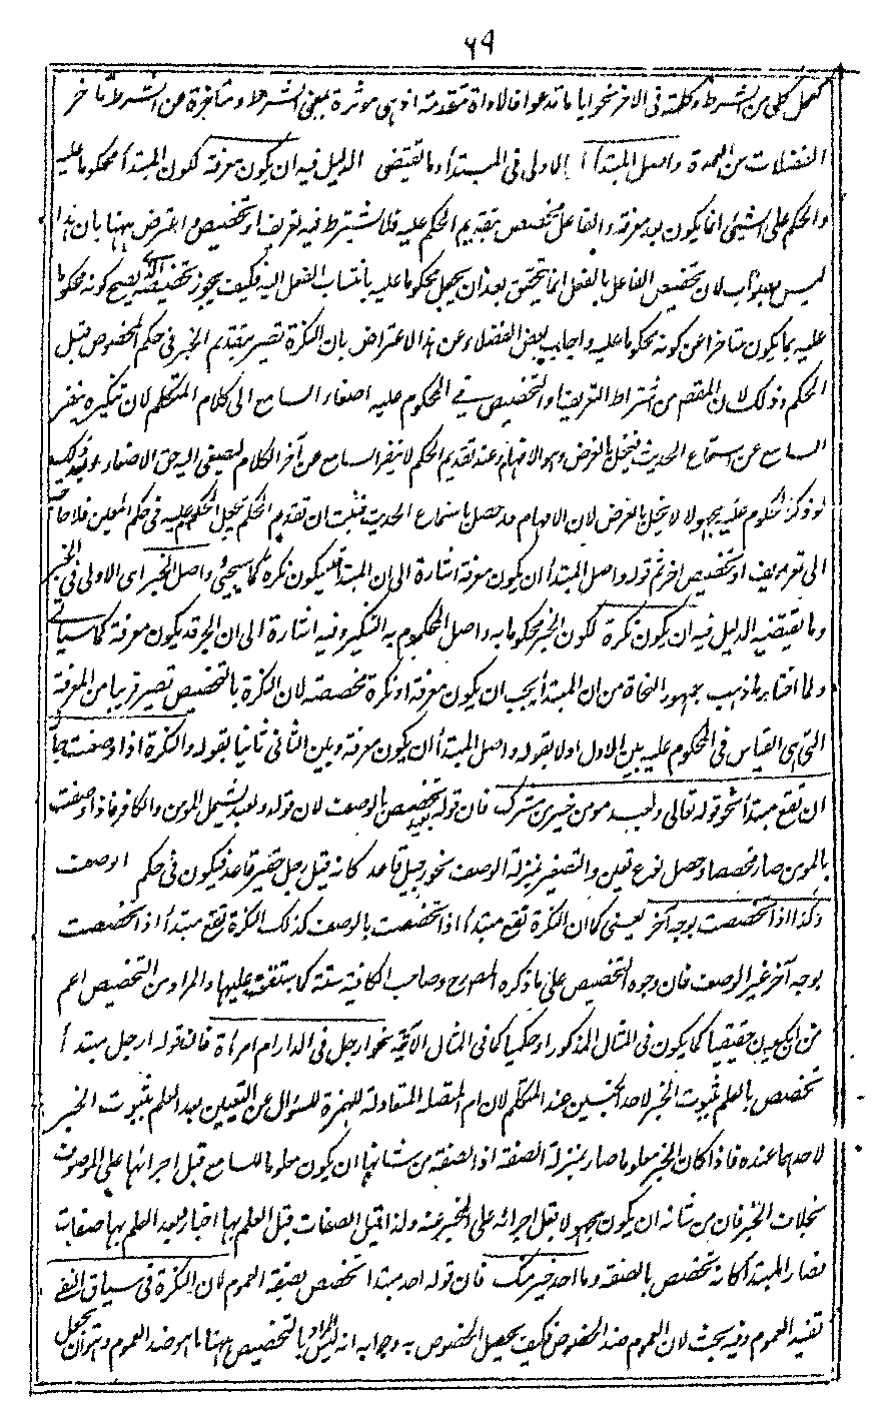 ٦٩
كعمل كلي من الشرط وكلمة في الآخر نحو أيا ما تدعوا فالاداة متقدمة اذ هي موثرة بمعنى الشرط ومتاخرة عن الشرط تاخر
الفضلات من العمدة واصل المبتدأ اي الاولى في المبتدأ وما تقتضي الدليل فيه ان يكون معرفة لكون المبتدأ محكوما عليه
والحكم على الشيئ انما يكون بعد معرفته والفاعل مختص بتقديم الحكم عليه فلا يشترط فيه تعريف او تخصيص واعترض ههنا بان هذا
ليس بصواب لان تخصيص الفاعل بالفعل انما يتحقق بعد ان يجعل محكوما عليه بانتساب الفعل اليه فكيف يجوز تخصيصه الذي يصح كونه محكوما
عليه بما يكون متاخرا عن كونه محكوما عليه واجاب بعض الفضلاء عن هذا الاعتراض بان النكرة تصير بتقديم الخبر في حكم المخصوص قبل
الحكم وذلك لان المقصود من اشتراط التعريف او التخصيص في المحكوم عليه اصغاء السامع الى كلام المتكلم لان تنكيره ينفر
السامع عن استماع الحديث فيخل بالغرض وهو الافهام وعند تقديم الحكم لا ينفر السامع عن آخر الكلام ليصغى اليه حق الاصغاء وبعد ذلك
لو ذكر المحكوم عليه مجهولا لا يخل بالغرض لان الافهام قد حصل باستماع الحديث فثبت ان تقديم الحكم يجعل المحكوم عليه في حكم المعين فلا حاجة
الى تعريف او تخصيص آخر ثم قوله واصل المبتدأ ان يكون معرفة اشارة الى ان المبتدأ قد يكون نكرة كما سيجئ واصل الخبر اي الاولى في الخبر
وما تقتضيه الدليل فيه ان يكون نكرة لكون الخبر محكوما به واصل المحكوم به التنكير وفيه اشارة الى ان الخبر قد يكون معرفة كما سياتي
ولما اختار ما ذهب جمهور النحاة من ان المبتدأ يجب ان يكون معرفة او نكرة مخصصة لان النكرة بالتخصيص تصير قريبا من المعرفة
التي هي القياس في المحكوم عليه بين الاول اولا بقوله واصل المبتدأ ان يكون معرفة وبين الثاني ثانيا بقوله والنكرة اذا وصفت جاز
ان تقع مبتدأ نحو قوله تعالى ولعبد مومن خير من مشرك فان قوله عبد تخصيص بالوصف لان قوله ولعبد يشمل المومن والكافر فاذا وصفت
بالمومن صار مخصصا وحصل نوع تعين والتصغير بمنزلة الوصف نحو رجيل قاعد كانه قيل رجل حقير قاعد فيكون في حكم الوصف
وكذا اذا تخصصت بوجه آخر يعني كما ان النكرة تقع مبتدأ اذا تخصصت بالوصف كذلك النكرة تقع مبتدأ اذا تخصصت
بوجه آخر غير الوصف فان وجوه التخصيص على ما ذكره المصرح وصاحب الكافية ستة كما ستقف عليها والمراد من التخصيص اعم
من ان يكون حقيقيا كما يكون في المثال المذكور او حكميا كما في المثال الآتية نحو ارجل في الدار ام امرأة فان قوله ارجل مبتدأ
تخصص بالعلم بثبوت الخبر لاحد الجنسين عند المتكلم لان ام المتصلة المتعادلة للهمزة للسؤال عن التعيين بعد العلم بثبوت الخبر
لاحدهما عنده فاذا كان الخبر معلوما صار بمنزلة الصفة اذ الصفة من شانها ان يكون معلوما للسامع قبل اجرائها على الموصوف
بخلاف الخبر فان من شانه ان يكون مجهولا قبل اجرائه على المخبر عنه ولذا قيل الصفات قبل العلم بها اخبار وبعد العلم بها صفات
فصار المبتدأ كانه تخصص بالصفة وما احد خير منك فان قوله احد مبتدا تخصص بصفة العموم لان النكرة في سياق النفي
تفيد العموم وفيه بحث لان العموم ضد الخصوص فكيف يحصل الخصوص به وجوابه انه ليس المراد بالتخصيص ههنا ما هو ضد العموم وهو ان يجعل